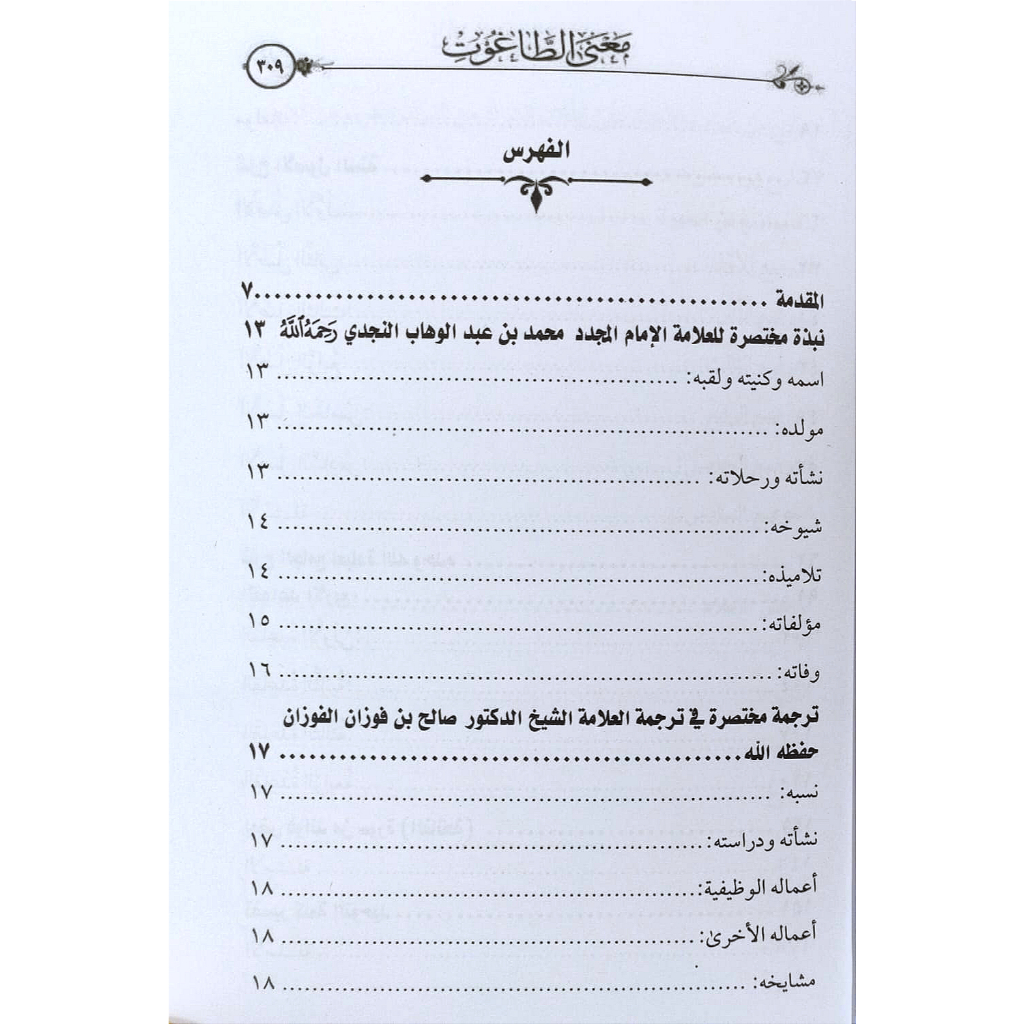 معنى الطاغوت
٣٠٩
الفهرس
المقدمة ..................................................... ٧
نبذة مختصرة للعلامة الإمام المجدد محمد بن عبد الوهاب النجدي رَحِمَهُ ٱللَّهُ ١٣
اسمه وكنيته ولقبه: ..................................................... ١٣
مولده: ..................................................... ١٣
نشأته ورحلاته: ..................................................... ١٣
شيوخه: ..................................................... ١٤
تلاميذه: ..................................................... ١٤
مؤلفاته: ..................................................... ١٥
وفاته: ..................................................... ١٦
ترجمة مختصرة في ترجمة العلامة الشيخ الدكتور صالح بن فوزان الفوزان
حفظه الله ..................................................... ١٧
نسبه: ..................................................... ١٧
نشأته ودراسته: ..................................................... ١٧
أعماله الوظيفية: ..................................................... ١٨
أعماله الأخرىٰ: ..................................................... ١٨
مشايخه: ..................................................... ١٨